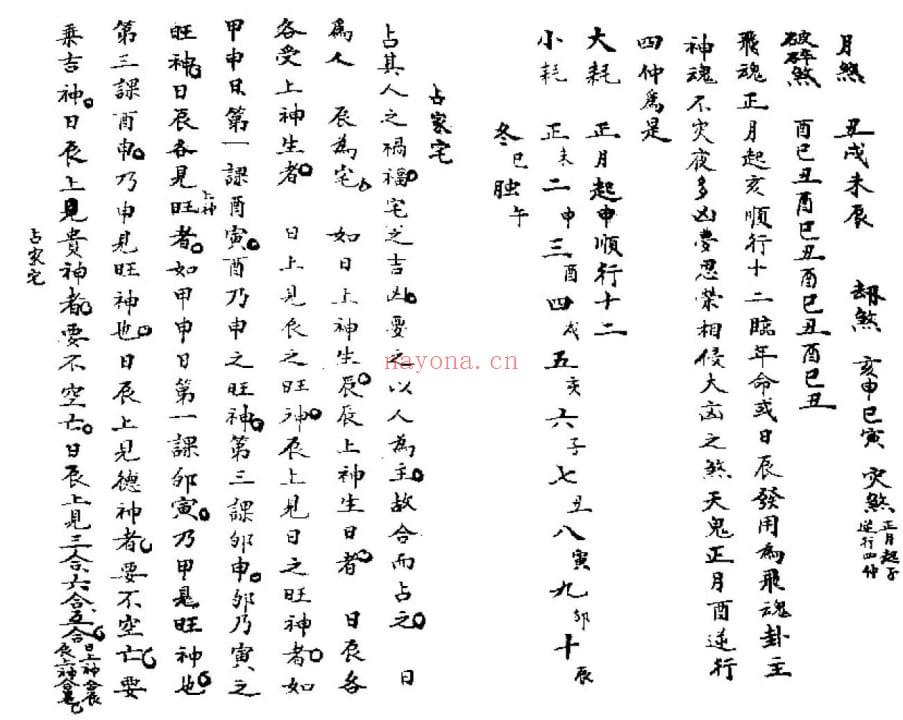 月煞　丑戌未辰　劫煞　亥申巳寅　灾煞　正月起子逆行四仲
破碎煞　酉巳丑酉巳丑酉巳丑酉巳丑
飛魂正月起亥順行十二臨年命或日辰發用為飛魂卦主
神魂不灾夜多凶夢忍荣相侵大凶之煞天鬼正月酉逆行
四仲為是
大耗　正月起申順行十二
小耗　正未二申三酉四戌五亥六子七丑八寅九卯十辰
冬巳　午
占家宅
占其人之禍福宅之吉凶要之以人為主故合而占之　日
為人　辰為宅　如日上神生辰辰上神生日者　日辰各
各受上神生者　日上見辰之旺神辰上見日之旺神者如
甲申日第一課酉寅酉乃申之旺神第三課卯申卯乃寅之
旺神日辰各見旺上神者如甲申日第一課卯寅乃甲見旺神也
第三課酉申乃申見旺神也日辰上見德神者要不空亡要
乘吉神日辰上見貴神者要不空亡日辰上見三合六合五合日上神合辰辰上神合日
占家宅
nayona.cn